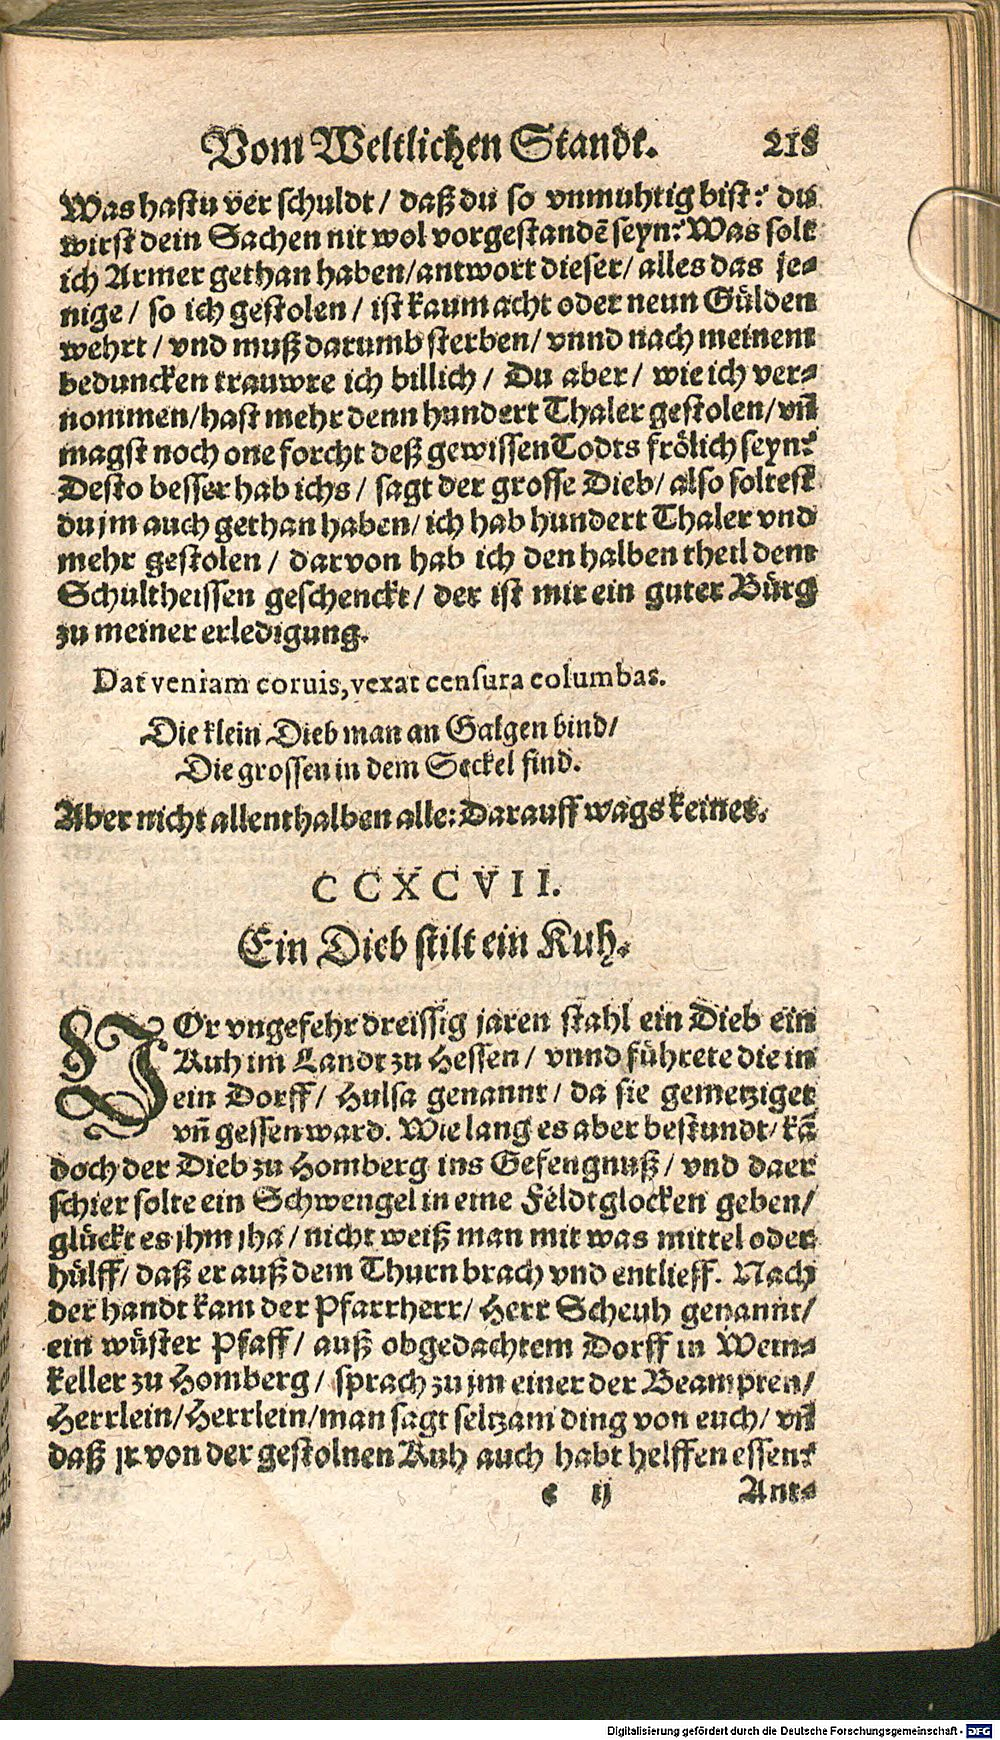 Vom Weltlichen Standt. 218
Was hastu verschuldt / daß du so vnmuhtig bist? du
wirst dein Sachen nit wol vorgestandẽ seyn? Was solt
ich Armer gethan haben/antwort dieser/ alles das je-
nige / so ich gestolen / ist kaum acht oder neun Gülden
wehrt / vnd muß darumb sterben/ vnnd nach meinem
beduncken trauwre ich billich / Du aber / wie ich ver-
nommen/hast mehr denn hundert Thaler gestolen/ vñ
magst noch one forcht deß gewissen Todts frölich seyn?
Desto besser hab ichs / sagt der grosse Dieb/ also soltest
du jm auch gethan haben/ ich hab hundert Thaler vnd
mehr gestolen / darvon hab ich den halben theil dem
Schultheissen geschenckt / der ist mir ein guter Bürg
zu meiner erledigung.
Dat veniam coruis, vexat censura columbas.
Die klein Dieb man an Galgen bind/
Die grossen in dem Seckel sind.
Aber nicht allenthalben alle: Darauff wags keiner.
CCXCVII.
Ein Dieb stilt ein Kuh.
VOr vngefehr dreissig jaren stahl ein Dieb ein
Kuh im Landt zu Hessen / vnnd führete die in
ein Dorff / Hulsa genannt / da sie gemetziget
vñ gessen ward. Wie lang es aber bestundt/ kã
doch der Dieb zu Homberg ins Gefengnuß / vnd da er
schier solte ein Schwengel in eine Feldtglocken geben/
glückt es jhm jha / nicht weiß man mit was mittel oder
hülff/ daß er auß dem Thurn brach vnd entlieff. Nach
der handt kam der Pfarrherr/ Herr Scheuh genannt/
ein wüster Pfaff / auß obgedachtem Dorff in Wein-
keller zu Homberg / sprach zu jm einer der Beampten/
Herrlein/Herrlein/man sagt seltzam ding von euch/ vñ
daß jr von der gestolnen Kuh auch habt helffen essen?
e ij Ant-
Digitalisierung gefördert durch die Deutsche Forschungsgemeinschaft - DFG